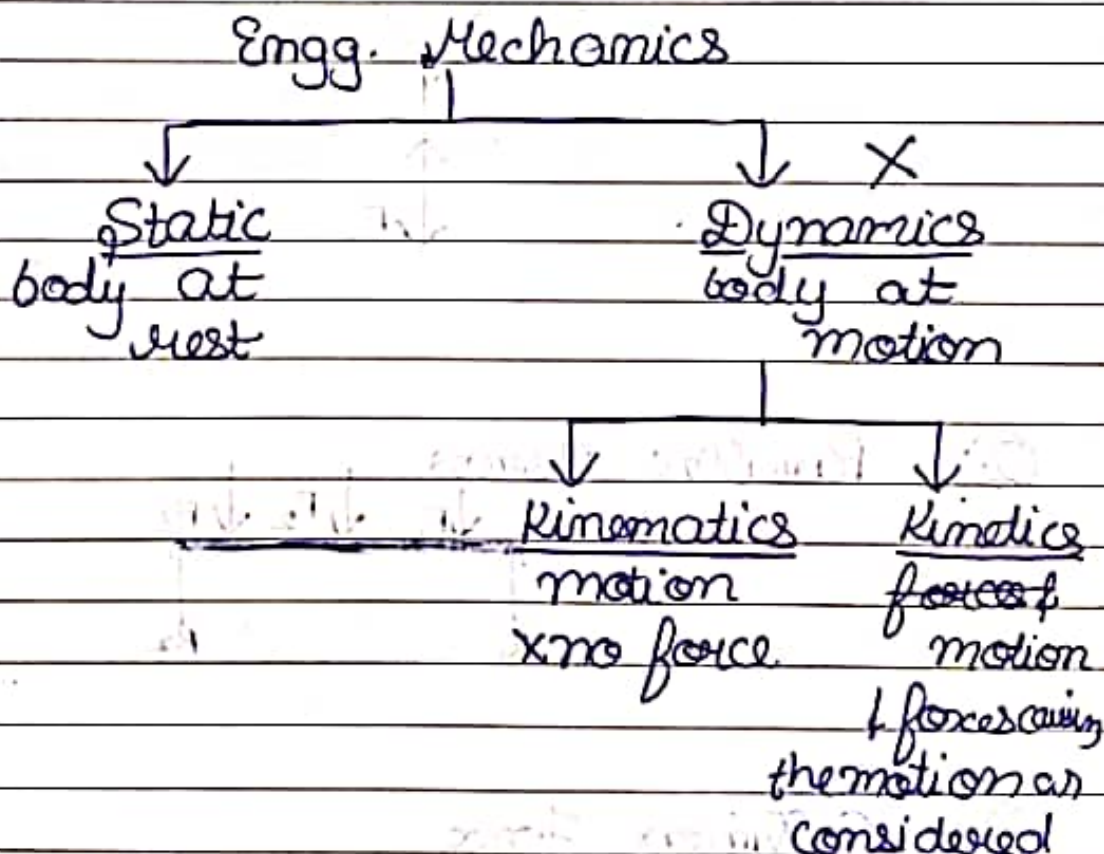 Engg. Mechanics
X
Static
Dynamics
body at
rest
body at
motion
Kinematics
motion
x no force
Kinetics
motion
& forces causing
the motion are
considered